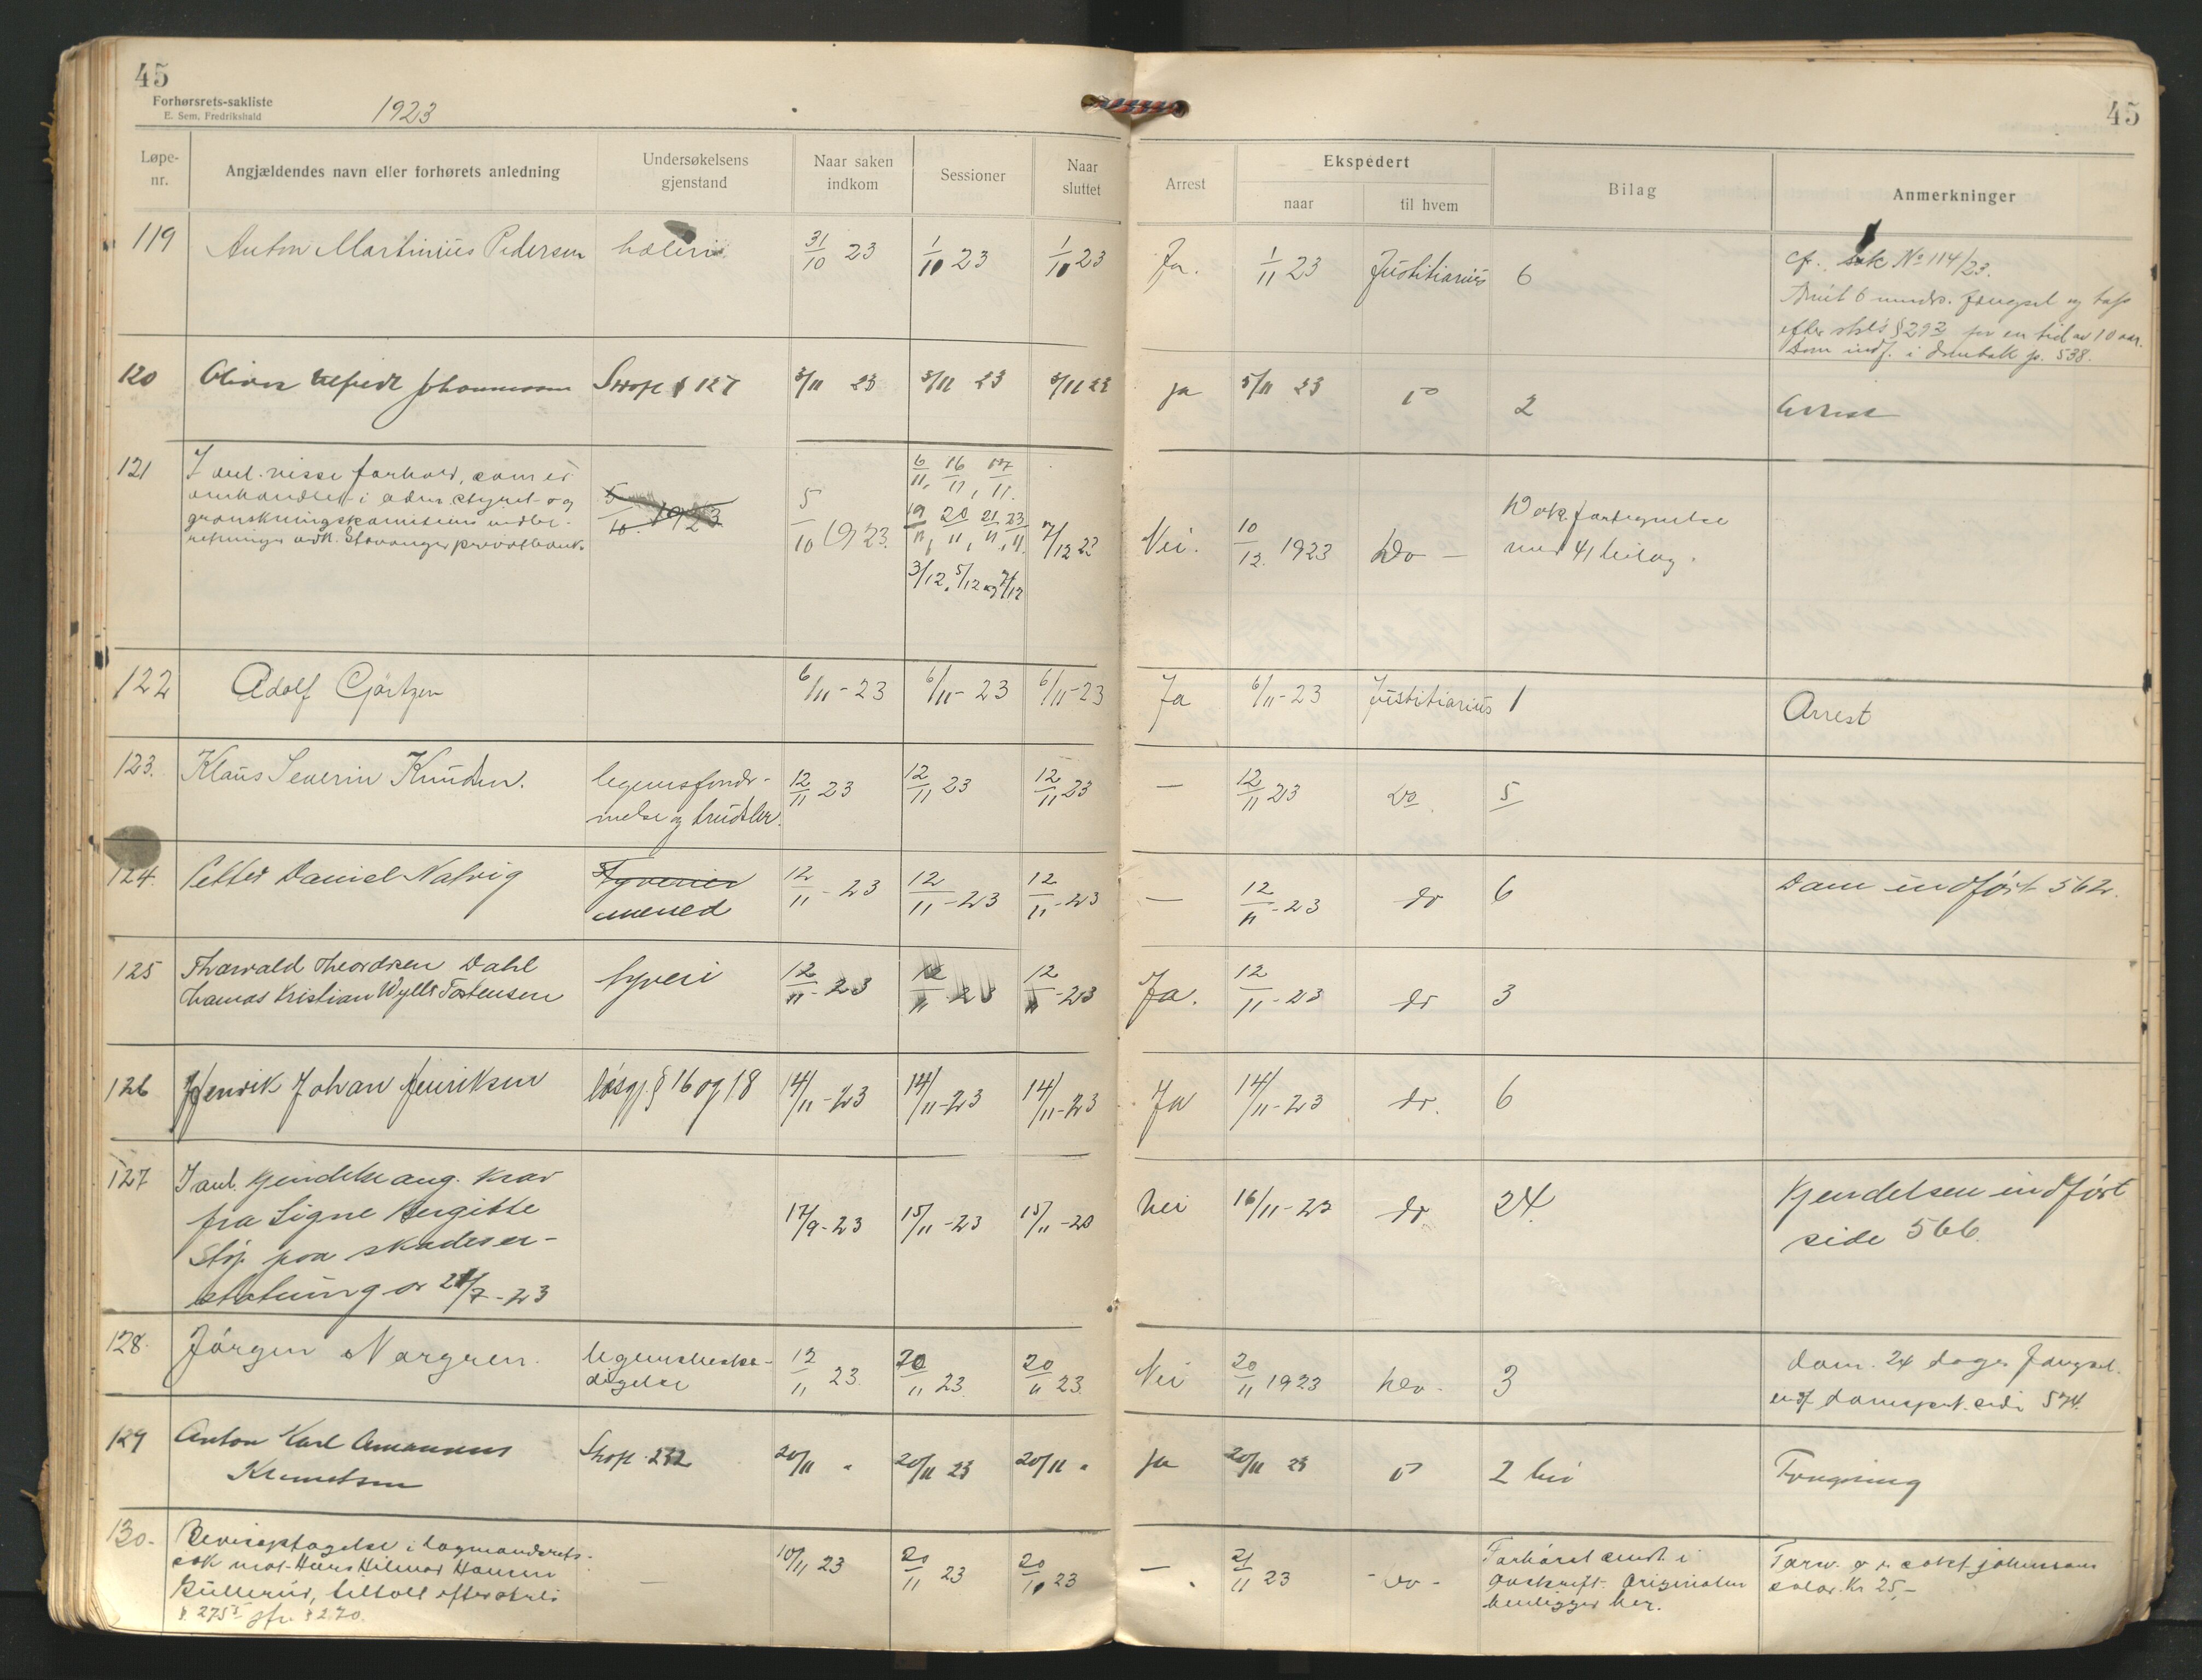 45
Forhørsrets-sakliste
E. Sem, Fredrikshald
1923
45
Løpe-nr.
Angjældendes navn eller forhørets anledning
Undersøkelsens gjenstand
Naar saken indkom
Sessioner
Naar sluttet
Arrest
Ekspedert
naar
til hvem
Bilag
Anmerkninger
119 Anton Martinius Pedersen hæleri 31/10 23 1/11 23 1/11 23 Ja. 1/11 23 Justitiarius 6
cf. sak No 114/23.
6 fængsel og
efter § 292 for en tid av 10 aar.
Dom indf. i p. 538.
120 Oliver Alfred Johannessen § 127 5/11 23 5/11 23 5/11 23 ja 5/11 23 do 2 Arrest
121 I anl. visse forhold, som er
omhandlet i adm. styret og
granskningskomiteens indbe-
retninger vedk. Stavanger privatbank.
5/10 1923
5/10 1923.
6/11, 16/11, 17/11.
19/11, 20/11, 21/11, 23/11.
3/12, 5/12 og 7/12
7/12 23
Nei. 10/12. 1923 Do —
Dok. fortegnelse
med 41 bilag.
122 Adolf Gjörtzen 6/11-23 6/11-23 6/11-23 Ja 6/11-23 Justitiarius 1 Arrest
123. Klaus Severin Knudsen. legemsfornær-
melse og trudsler. 12/11 23 12/11 23 12/11 23 — 12/11 23 do 5
124. Petter Daniel Natvig Tyverier
mened 12/11-23 12/11-23 12/11-23 — 12/11-23 do 6 Dom indført 562.
125 Thorvald Theodrsen Dahl
Thomas Kristian Wylls Torstensen tyveri 12/11-23 12/11-23 12/11-23 Ja. 12/11-23 do 3
126 Henrik Johan Henriksen løsgj. § 16 og 18 14/11-23 14/11-23 14/11-23 Ja 14/11-23 do. 6
127 I anl. kjendelse ang. krav
fra Signe Bergitte
paa skadeser-
statning av 21/7-23
17/9-23 15/11-23 15/11-23 Nei 16/11-23 do 24.
Kjendelsen indført
side 566.
128. Jörgen Norgren. legemsbeska-
digelse 12/11 23. 20/11 23. 20/11 23. Nei 20/11 1923 Do. 3
Dom. 24 dages fængsel.
indf domsprot. side 574.
129 Anton Karl
Knudsen 232 20/11 " 20/11 23 20/11 " ja 20/11 23 do 2 Fængsling
130. Bevisoptagelse i lagmandsrets-
sak mot Hans Hilmar Hansen
Bullerud, tiltalt efter strls
§ 275 jfr. § 270.
— 10/11 23 20/11 23 20/11 23 — 21/11 23 - do -
Forhøret sendt i
avskrift. Originalen
henligger her.
Forsv. o.r. sakf. Johnsons
salær. Kr 25,-